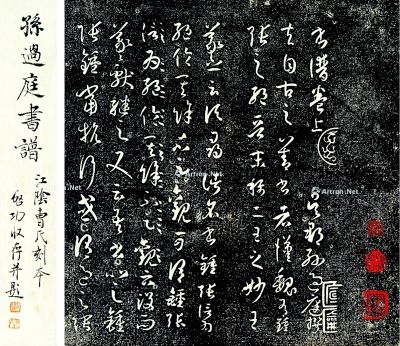 孫過庭書譜
江陰曹氏刻本
啟功收存并題
書譜卷上 吳郡孫過庭撰
夫自古之善書者漢魏有鍾
張之絕晉末稱二王之妙王
羲之云頃尋諸名書鍾張信
為絕倫其餘不足觀可謂鍾張
云沒而
羲獻繼之又云吾書比之鍾
張鍾當抗行或謂過之張
Artron.Net
Artron.Net
Artron.Net